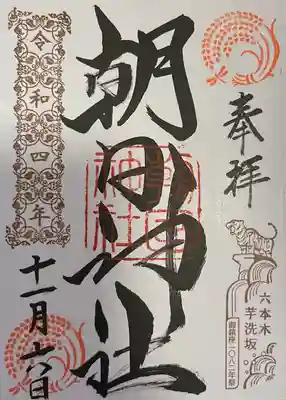 奉拝
六本木
芋洗坂
御鎮座一〇八二年祭
朝日神社
令和四年
十一月六日